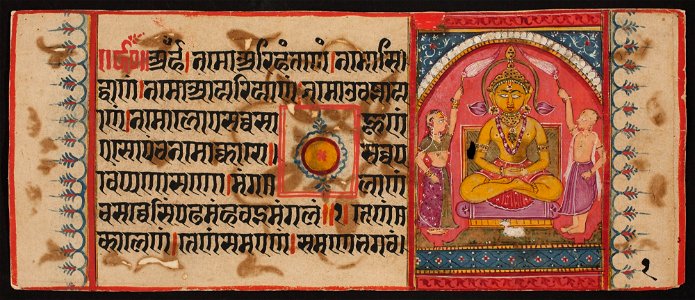 अर्हं। नमो अरिहंताणं। नमो सि
द्धाणं। नमो आयरियाणं। नमो उवज्झाया
णं। नमो लोए सव्वसा हूणं
एसो पंच नमोक्कारो। सव्वपा
वप्पणासणो। मंग लाणं
च सव्वेसिं पढमं हवइ मंगलं॥१ तेणं
कालेणं। तेणं समएणं। समणे भगवं।
१